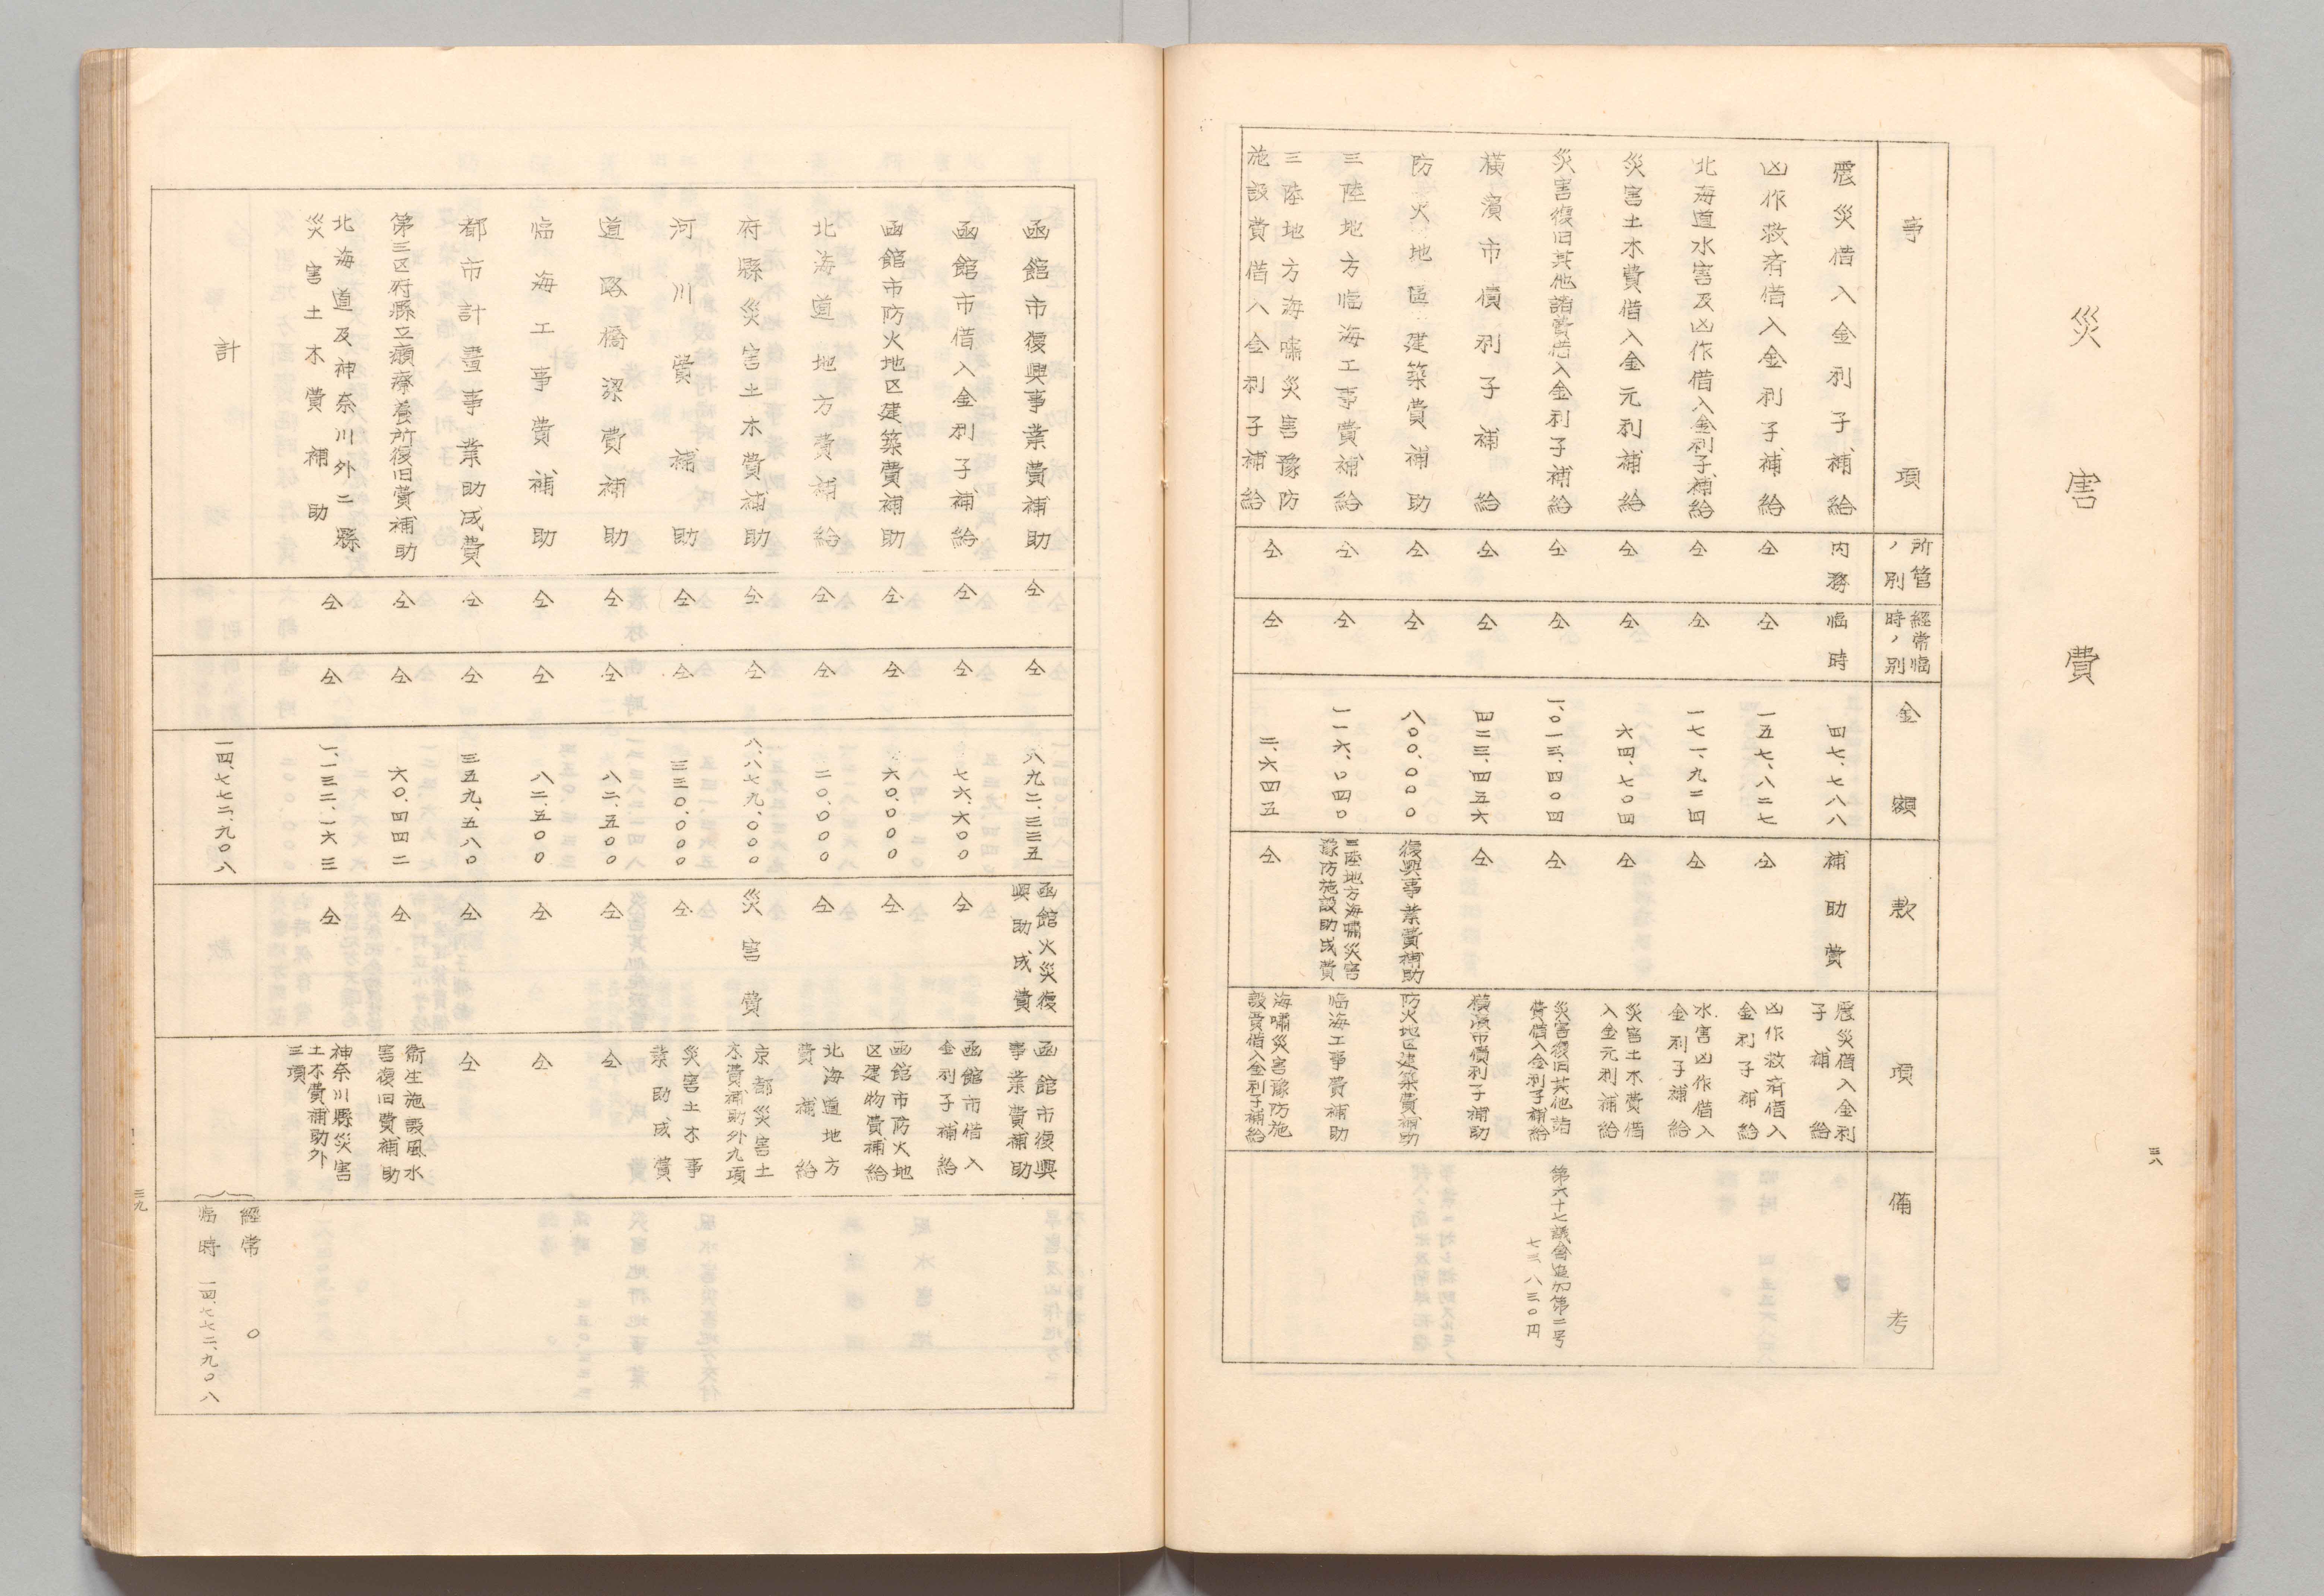 災害費
三八
事項
所管ノ別
経常臨時ノ別
金額
款
項
備考
震災借入金利子補給
内務
臨時
四七、七八八
補助費
震災借入金利子補給
凶作救済借入金利子補給
仝
仝
一五七、八二七
仝
凶作救済借入金利子補給
北海道水害及凶作借入金利子補給
仝
仝
一七一、九二四
仝
水害凶作借入金利子補給
災害土木費借入金元利補給
仝
仝
六四、七〇四
仝
災害土木費借入金元利補給
災害復旧其他諸費借入金利子補給
仝
仝
一、〇一三、四〇四
仝
災害復旧其他諸費借入金利子補給
第六十七議会追加第二号
七三、八三〇円
横濱市債利子補給
仝
仝
四二三、四五六
仝
横濱市債利子補助
防火地區建築費補助
仝
仝
八〇〇、〇〇〇
復興事業費補助
防火地区建築費補助
三陸地方臨海工事費補給
仝
仝
一一六、〇四〇
三陸地方海嘯災害豫防施設助成費
臨海工事費補助
三陸地方海嘯災害豫防施設費借入金利子補給
仝
仝
二、六四五
仝
海嘯災害豫防施設費借入金利子補給
函館市復興事業費補助
仝
仝
八九二、三三五
函館火災復興助成費
函館市復興事業費補助
函館市借入金利子補給
仝
仝
七六、六〇〇
仝
函館市借入金利子補給
函館市防火地区建築費補助
仝
仝
六〇、〇〇〇
仝
函館市防火地区建物費補給
北海道地方費補給
仝
仝
二〇、〇〇〇
仝
北海道地方費補給
府縣災害土木費補助
仝
仝
八、八七九、〇〇〇
災害費
京都災害土木費補助外九項
河川費補助
仝
仝
三三〇、〇〇〇
仝
災害土木事業助成費
道路橋梁費補助
仝
仝
八二、五〇〇
仝
仝
臨海工事費補助
仝
仝
八二、五〇〇
仝
仝
都市計畫事業助成費
仝
仝
三五九、五八〇
仝
仝
第三区府縣立癩療養所復旧費補助
仝
仝
六〇、四四二
仝
衛生施設風水害復旧費補助
北海道及神奈川外二縣災害土木費補助
仝
仝
一、一三二、一六三
仝
神奈川縣災害土木費補助外三項
計
一四、七七二、九〇八
経常 〇
臨時 一四、七七二、九〇八
三九